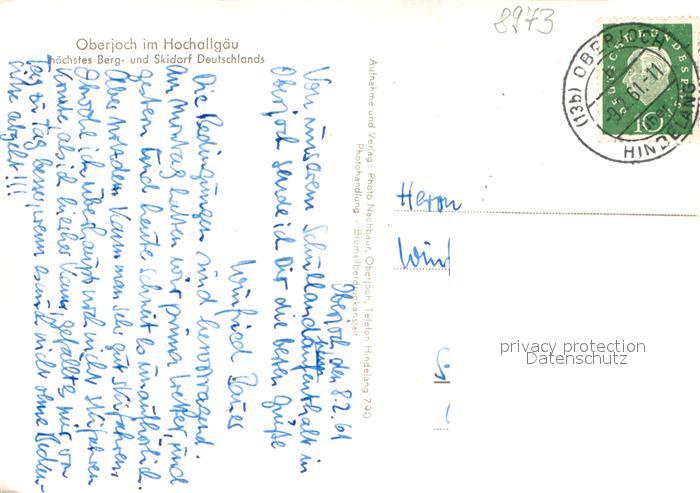 8973
Oberjoch im Hochallgäu
höchstes Berg- und Skidorf Deutschlands
Oberjoch, den 8.2.61
Von unserem Schullandaufenthalt in
Oberjoch sende ich Dir die besten Grüße
Winfried Bauer
Die Bedingungen sind hervorragend.
Am Montag hatten wir prima Wetter, und
gestern und heute schneit es unaufhörlich.
Aber trotzdem kann man sehr gut skifahren.
Obwohl ich überhaupt noch nicht skifahren
konnte, als ich hierher kam, gefällt es mir von
Tag zu Tag besser, wenn es auch nicht ohne
abgeht!!!
Aufnahme und Verlag: Photo Nachbaur, Oberjoch, Telefon Hindelang 790
Photohandlung - Bromsilberdruckanstalt
Herrn
Winf
(13b) OBERJOCH
-9.2.61.-11
HINDELANG
DEUTSCHE BUNDESPOST
10
privacy protection
Datenschutz